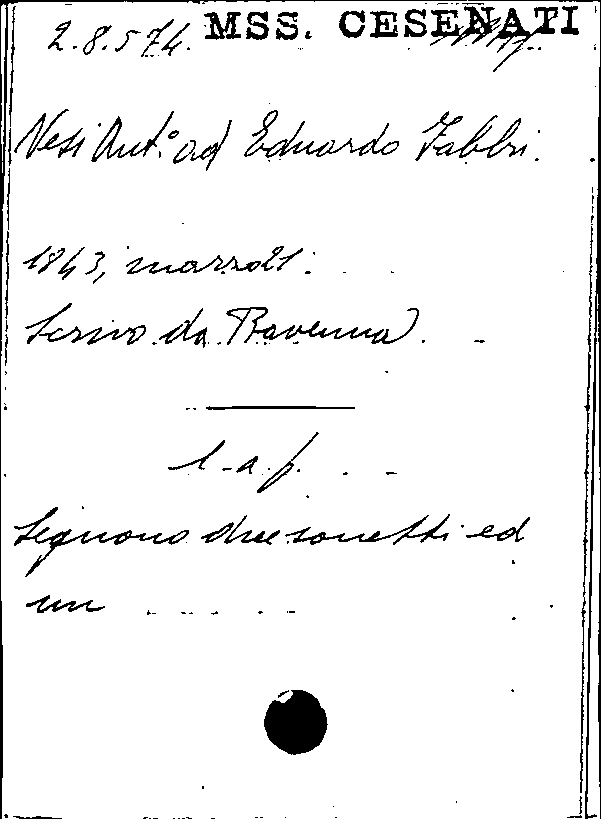 2.8.574. MSS. CESENATI
Vesi Ant.° ad Eduardo Fabbri.
1843, marzo 21.
Scrivo da Ravenna.
l. a. f.
Seguono due sonetti ed
un